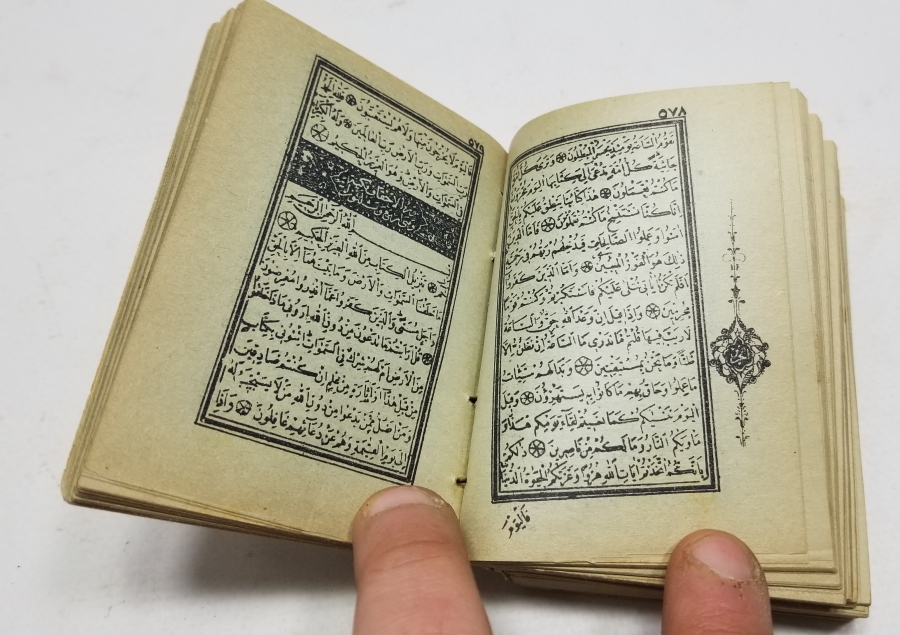 ٥٧٨
تَقُومُ السَّاعَةُ يَوْمَئِذٍ يَخْسَرُ الْمُبْطِلُونَ وَتَرٰى كُلَّ اُمَّةٍ
جَاثِيَةً كُلُّ اُمَّةٍ تُدْعٰى اِلٰى كِتَابِهَا اَلْيَوْمَ تُجْزَوْنَ
مَا كُنْتُمْ تَعْمَلُونَ هٰذَا كِتَابُنَا يَنْطِقُ عَلَيْكُمْ بِالْحَقِّ
اِنَّا كُنَّا نَسْتَنْسِخُ مَا كُنْتُمْ تَعْمَلُونَ فَاَمَّا الَّذِينَ
اٰمَنُوا وَعَمِلُوا الصَّالِحَاتِ فَيُدْخِلُهُمْ رَبُّهُمْ فِي رَحْمَتِهِ
ذٰلِكَ هُوَ الْفَوْزُ الْمُبِينُ وَاَمَّا الَّذِينَ كَفَرُوا
اَفَلَمْ تَكُنْ اٰيَاتِي تُتْلٰى عَلَيْكُمْ فَاسْتَكْبَرْتُمْ وَكُنْتُمْ قَوْمًا
مُجْرِمِينَ وَاِذَا قِيلَ اِنَّ وَعْدَ اللّٰهِ حَقٌّ وَالسَّاعَةُ
لَا رَيْبَ فِيهَا قُلْتُمْ مَا نَدْرِي مَا السَّاعَةُ اِنْ نَظُنُّ اِلَّا
ظَنًّا وَمَا نَحْنُ بِمُسْتَيْقِنِينَ وَبَدَا لَهُمْ سَيِّئَاتُ
مَا عَمِلُوا وَحَاقَ بِهِمْ مَا كَانُوا بِهِ يَسْتَهْزِؤُنَ وَقِيلَ
الْيَوْمَ نَنْسٰيكُمْ كَمَا نَسِيتُمْ لِقَاءَ يَوْمِكُمْ هٰذَا وَ
مَأْوٰيكُمُ النَّارُ وَمَا لَكُمْ مِنْ نَاصِرِينَ ذٰلِكُمْ
بِاَنَّكُمُ اتَّخَذْتُمْ اٰيَاتِ اللّٰهِ هُزُوًا وَغَرَّتْكُمُ الْحَيٰوةُ الدُّنْيَا
فَالْيَوْمَ
٥٧٩
فَالْيَوْمَ لَا يُخْرَجُونَ مِنْهَا وَلَا هُمْ يُسْتَعْتَبُونَ فَلِلّٰهِ الْحَمْدُ
رَبِّ السَّمٰوَاتِ وَرَبِّ الْاَرْضِ رَبِّ الْعَالَمِينَ وَلَهُ الْكِبْرِيَاءُ
فِي السَّمٰوَاتِ وَالْاَرْضِ وَهُوَ الْعَزِيزُ الْحَكِيمُ
سورة الاحقاف مكية
بِسْمِ اللّٰهِ الرَّحْمٰنِ الرَّحِيمِ
حٰمٓ تَنْزِيلُ الْكِتَابِ مِنَ اللّٰهِ الْعَزِيزِ الْحَكِيمِ
مَا خَلَقْنَا السَّمٰوَاتِ وَالْاَرْضَ وَمَا بَيْنَهُمَا اِلَّا بِالْحَقِّ
وَاَجَلٍ مُسَمًّى وَالَّذِينَ كَفَرُوا عَمَّا اُنْذِرُوا مُعْرِضُونَ
قُلْ اَرَاَيْتُمْ مَا تَدْعُونَ مِنْ دُونِ اللّٰهِ اَرُونِي مَاذَا خَلَقُوا
مِنَ الْاَرْضِ اَمْ لَهُمْ شِرْكٌ فِي السَّمٰوَاتِ ائْتُونِي بِكِتَابٍ
مِنْ قَبْلِ هٰذَا اَوْ اَثَارَةٍ مِنْ عِلْمٍ اِنْ كُنْتُمْ صَادِقِينَ
وَمَنْ اَضَلُّ مِمَّنْ يَدْعُوا مِنْ دُونِ اللّٰهِ مَنْ لَا يَسْتَجِيبُ لَهُ
اِلٰى يَوْمِ الْقِيٰمَةِ وَهُمْ عَنْ دُعَائِهِمْ غَافِلُونَ وَاِذَا